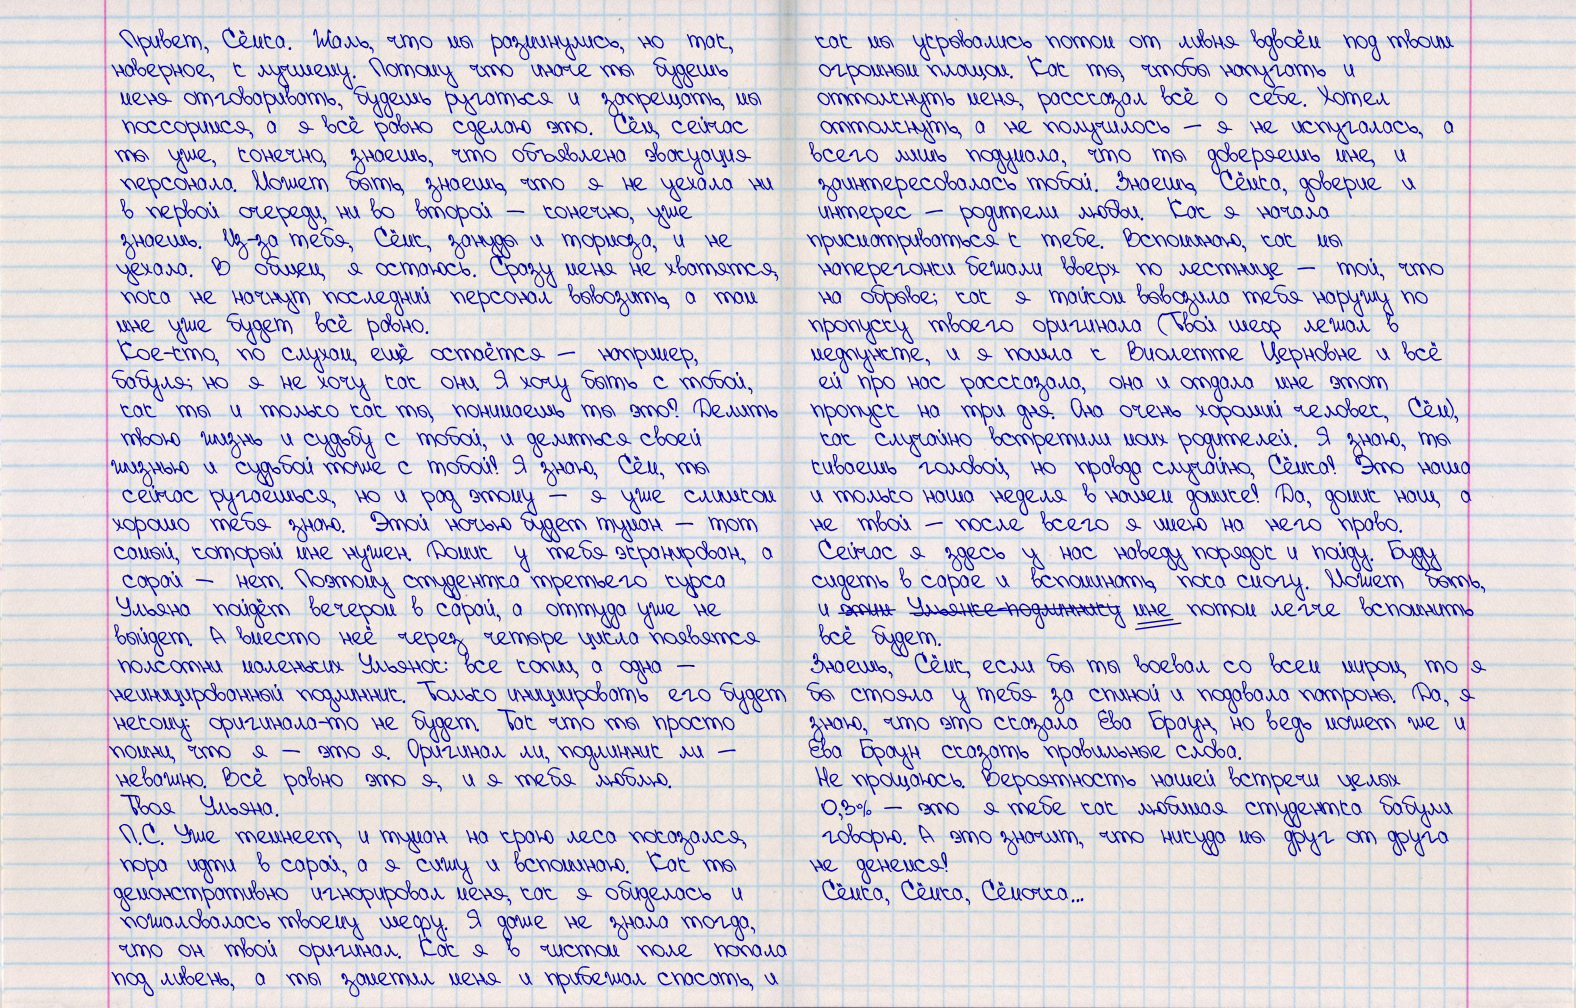 Привет, Сёмка. Жаль, что мы разминулись, но так,
наверное, к лучшему. Потому что иначе ты будешь
меня отговаривать, будешь ругаться и запрещать, мы
поссоримся, а я всё равно сделаю это. Сём, сейчас
ты уже, конечно, знаешь, что объявлена эвакуация
персонала. Может быть, знаешь, что я не уехала ни
в первой очереди, ни во второй – конечно, уже
знаешь. Из-за тебя, Сёмк, зануды и тормоза, и не
уехала. В общем, я остаюсь. Сразу меня не хватятся,
пока не начнут последний персонал вывозить, а там
мне уже будет всё равно.
Кое-кто, по слухам, ещё остаётся – например,
бабуля; но я не хочу как они. Я хочу быть с тобой,
как ты и только как ты, понимаешь ты это? Делить
твою жизнь и судьбу с тобой, и делиться своей
жизнью и судьбой тоже с тобой! Я знаю, Сём, ты
сейчас ругаешься, но и рад этому – я уже слишком
хорошо тебя знаю. Этой ночью будет туман – тот
самый, который мне нужен. Домик у тебя экранирован, а
сарай – нет. Поэтому студентка третьего курса
Ульяна пойдёт вечером в сарай, а оттуда уже не
выйдет. А вместо неё через четыре цикла появятся
полсотни маленьких Ульянок: все копии, а одна –
неиницированный подлинник. Только инициировать его будет
некому: оригинала-то не будет. Так что ты просто
помни, что я – это я. Оригинал ли, подлинник ли –
неважно. Всё равно это я, и я тебя люблю.
Твоя Ульяна.
П.С. Уже темнеет, и туман на краю леса показался,
пора идти в сарай, а я сижу и вспоминаю. Как ты
демонстративно игнорировал меня, как я обиделась и
пожаловалась твоему шефу. Я даже не знала тогда,
что он твой оригинал. Как я в чистом поле попала
под ливень, а ты заметил меня и прибежал спасать, и
как мы укрывались потом от ливня вдвоём под твоим
огромным плащом. Как ты, чтобы напугать и
оттолкнуть меня, рассказал всё о себе. Хотел
оттолкнуть, а не получилось – я не испугалась, а
всего лишь подумала, что ты доверяешь мне, и
заинтересовалась тобой. Знаешь, Сёмка, доверие и
интерес – родители любви. Как я начала
присматриваться к тебе. Вспоминаю, как мы
наперегонки бежали вверх по лестнице – той, что
на обрыве; как я тайком вывозила тебя наружу по
пропуску твоего оригинала (Твой шеф лежал в
медпункте, и я пошла к Виолетте Церновне и всё
ей про нас рассказала, она и отдала мне этот
пропуск на три дня. Она очень хороший человек, Сём),
как случайно встретили моих родителей. Я знаю, ты
киваешь головой, но правда случайно, Сёмка! Это наша
и только наша неделя в нашем домике! Да, домик наш, а
не твой – после всего я имею на него право.
Сейчас я здесь у нас наведу порядок и пойду. Буду
сидеть в сарае и вспоминать, пока смогу. Может быть,
и этим Ульянке-подлиннику мне потом легче вспомнить
всё будет.
Знаешь, Сёмк, если бы ты воевал со всем миром, то я
бы стояла у тебя за спиной и подавала патроны. Да, я
знаю, что это сказала Ева Браун, но ведь может же и
Ева Браун сказать правильные слова.
Не прощаюсь. Вероятность нашей встречи целых
0,3% – это я тебе как любимая студентка бабули
говорю. А это значит, что никуда мы друг от друга
не денемся!
Сёмка, Сёмка, Сёмочка...